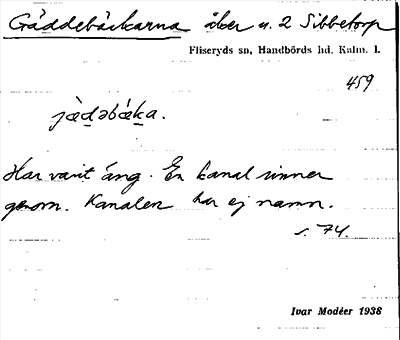 Gäddebäckarna åker u. 2 Sibbetorp
Fliseryds sn, Handbörds hd, Kalm. l.
459
jàd̲əbáka.
Har varit äng. En kanal rinner
genom. Kanalen har ej namn.
s. 74.
Ivar Modéer 1938